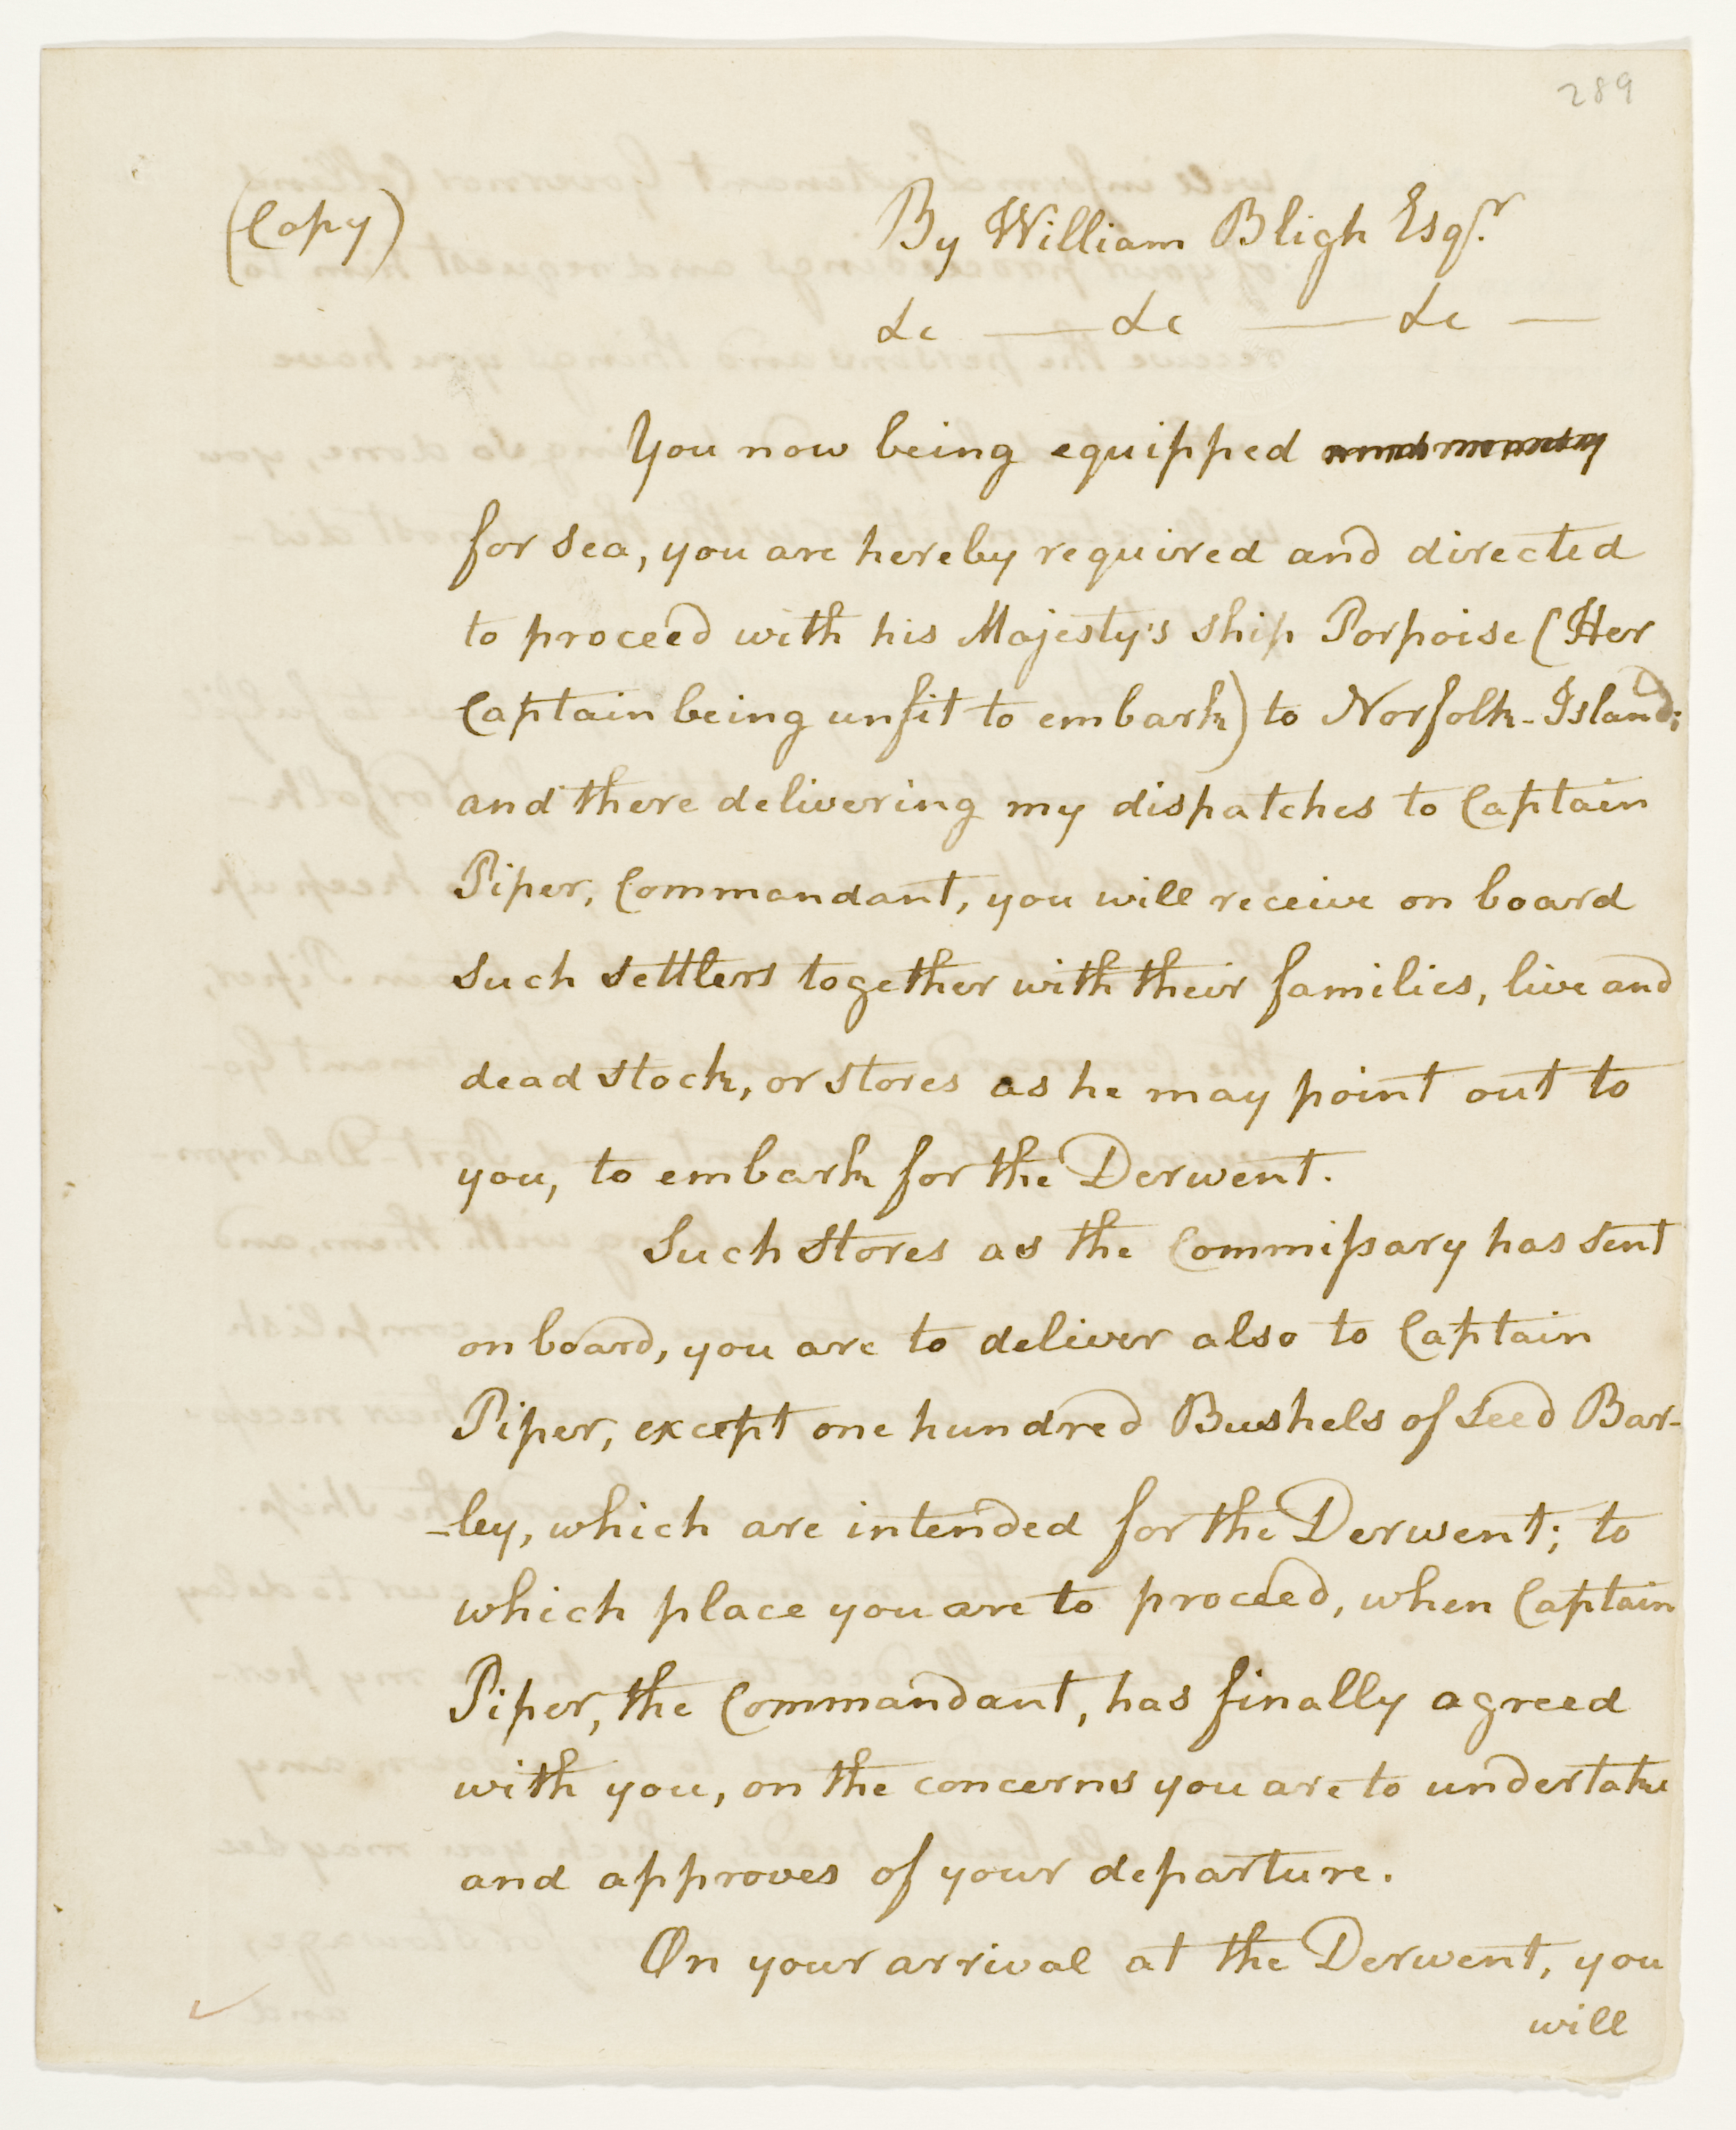 289
(Copy)
By William Bligh Esqr.
&c — &c — &c —
You now being equipped
for sea, you are hereby required and directed
to proceed with his Majesty's ship Porpoise (Her
Captain being unfit to embark) to Norfolk-Island;
and there delivering my dispatches to Captain
Piper, Commandant, you will receive on board
such settlers together with their families, live and
dead stock, or stores as he may point out to
you, to embark for the Derwent.
Such stores as the Commißary has sent
on board, you are to deliver also to Captain
Piper, except one hundred Bushels of Seed Bar-
-ley, which are intended for the Derwent; to
which place you are to proceed, when Captain
Piper, the Commandant, has finally agreed
with you, on the concerns you are to undertake
and approves of your departure.
On your arrival at the Derwent, you
will